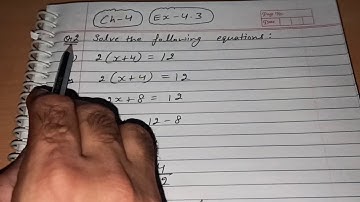 Ch-4 Ex-4.3
Page No.
Date
Q.2 Solve the following equations:
2(x+4) = 12
2(x+4) = 12
2x+8 = 12
12-8
4
2